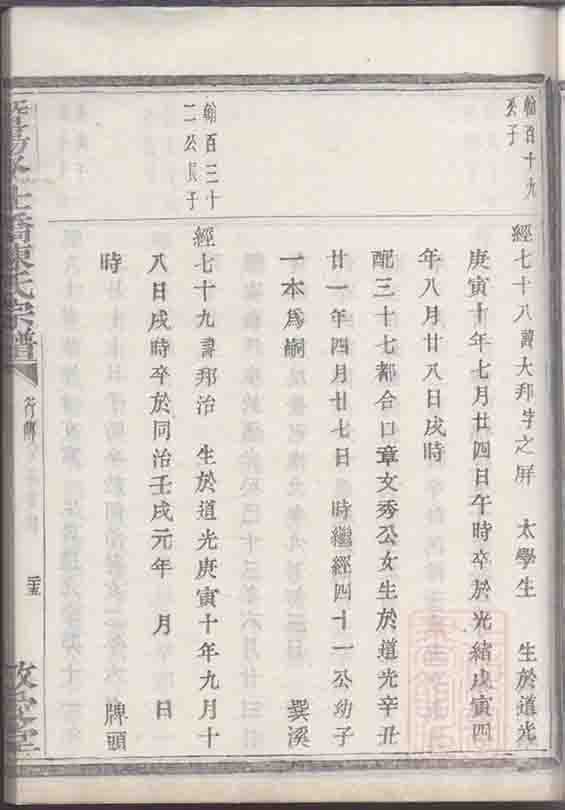 翰百十九
公子
經七十八諱大邦字之屏 太學生 生於道光
庚寅十年七月廿四日午時卒於光緒戊寅四
年八月廿八日戌時
配三十七都合口章文秀公女生於道光辛丑
廿一年四月廿七日 時繼經四十一公幼子
一本為嗣 巽溪
翰百三十
二公長子
經七十九諱邦治 生於道光庚寅十年九月十
八日戌時卒於同治壬戌元年 月 日
時 牌頭
橋陳氏宗譜
行傳